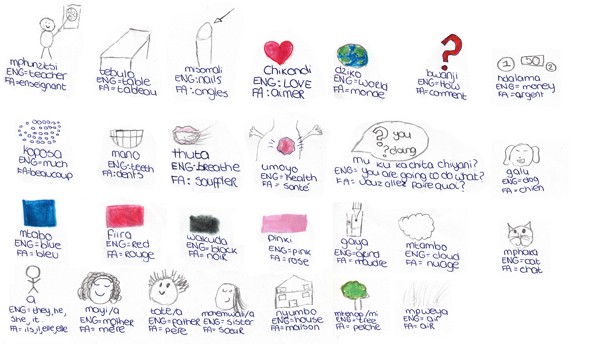 mphunzitsi
ENG=teacher
FA=enseignant
tebulo
ENG=table
FA=tableau
misomali
ENG=nails
FA=ongles
Chikondi
ENG=LOVE
FA=aimer
dziko
ENG=world
FA=monde
bwanji
ENG=How
FA=comment
1 50 2
ndalama
ENG=money
FA=argent
koposa
ENG=much
FA=beaucoup
mano
ENG=teeth
FA=dents
thuta
ENG=breathe
FA=souffler
umoyo
ENG=health
FA=santé
? you
? doing
mu ku kachita chiyani?
ENG=you are going to do what?
FA=vouz allez faire quoi?
galu
ENG=dog
FA=chien
mtabo
ENG=blue
FA=bleu
fiira
ENG=red
FA=rouge
wakuda
ENG=black
FA=noir
pinki
ENG=pink
FA=rose
gaya
ENG=grind
FA=moudre
mtambo
ENG=cloud
FA=nuage
mphaka
ENG=cat
FA=chat
a
ENG=they, he,
she, it.
FA=ils, il, elle, elle
mayi/a
ENG=mother
FA=mère
tate/a
ENG=father
FA=père
ENG=sister
FA=sœur
nyumbo
ENG=house
FA=maison
ENG=tree
FA=perche
mpweya
ENG=air
FA=air